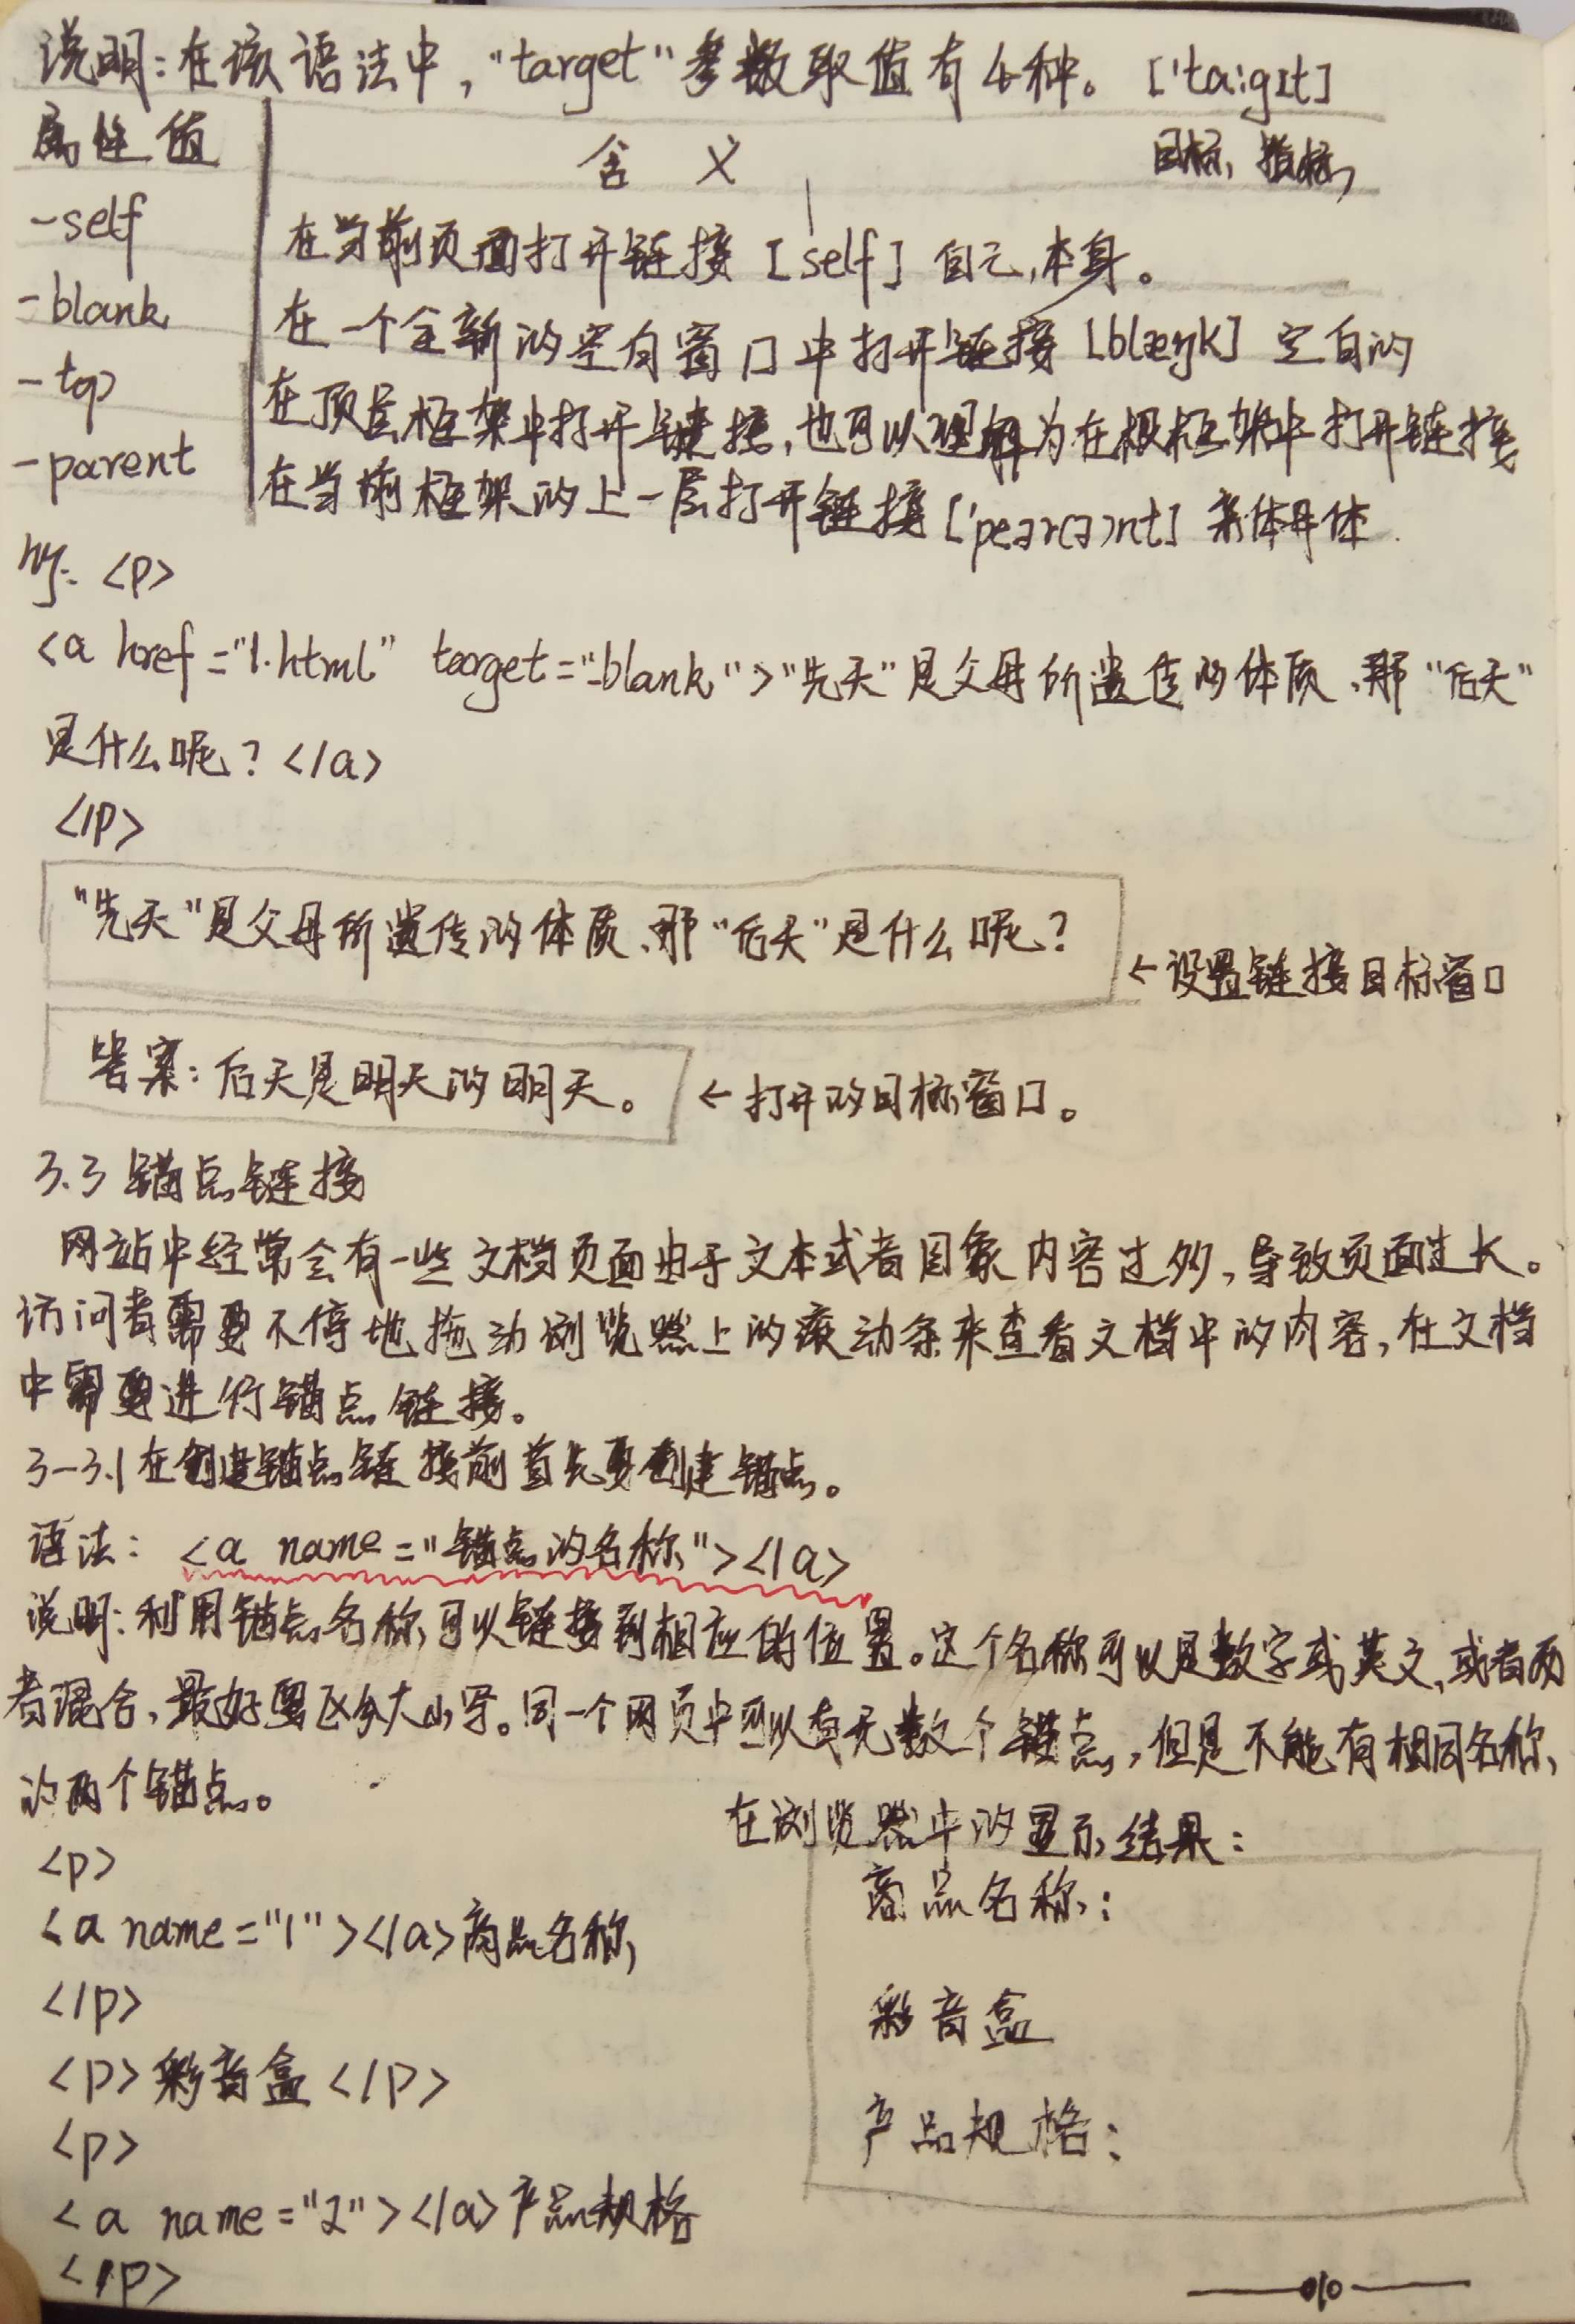 说明:在该语法中,"target"参数取值有4种。 ['ta:gɪt]
属性值 含 义 目标,指标
-self 在当前页面打开链接 [self] 自己,本身。
-blank 在一个全新的空白窗口中打开链接 [blæŋk] 空白的
-top 在顶层框架中打开链接,也可以理解为在根框架中打开链接
-parent 在当前框架的上一层打开链接 ['peər(ə)nt]
例: <p>
<a href="1.html" target="-blank">"先天"是父母所遗传的体质、那"后天"
是什么呢?</a>
</p>
"先天"是父母所遗传的体质、那"后天"是什么呢?
←设置链接目标窗口
答案:后天是明天的明天。 ←打开的目标窗口。
3.3 锚点链接
网站中经常会有一些文档页面由于文本或者图象内容过多,导致页面过长。
访问者需要不停地拖动浏览器上的滚动条来查看文档中的内容,在文档
中需要进行锚点链接。
3-3.1在创建锚点链接前首先要创建锚点。
语法: <a name="锚点的名称"></a>
说明:利用锚点名称可以链接到相应的位置。这个名称可以是数字或英文,或者两
者混合,最好要区分大小写。同一个网页中可以有无数个锚点,但是不能有相同名称
的两个锚点。
<p>
<a name="1"></a>商品名称
</p>
<p>彩音盒</p>
<p>
<a name="2"></a>产品规格
</p>
在浏览器中的显示结果:
商品名称:
彩音盒
产品规格: